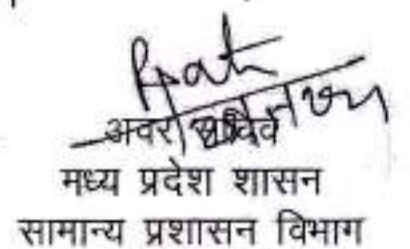 अवर सचिव
मध्य प्रदेश शासन
सामान्य प्रशासन विभाग